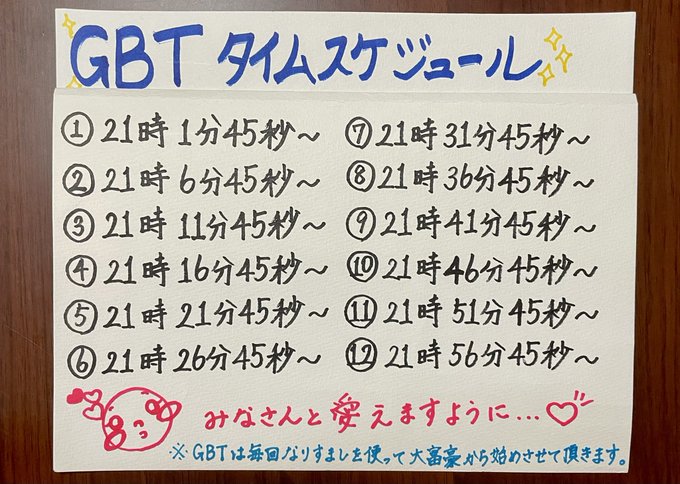 GBT タイムスケジュール
① 21時 1分45秒～
② 21時 6分45秒～
③ 21時 11分45秒～
④ 21時 16分45秒～
⑤ 21時 21分45秒～
⑥ 21時 26分45秒～
⑦ 21時 31分45秒～
⑧ 21時 36分45秒～
⑨ 21時 41分45秒～
⑩ 21時 46分45秒～
⑪ 21時 51分45秒～
⑫ 21時 56分45秒～
みなさんと愛えますように...♡
※GBTは毎回なりすましを使って大富豪から始めさせて頂きます。